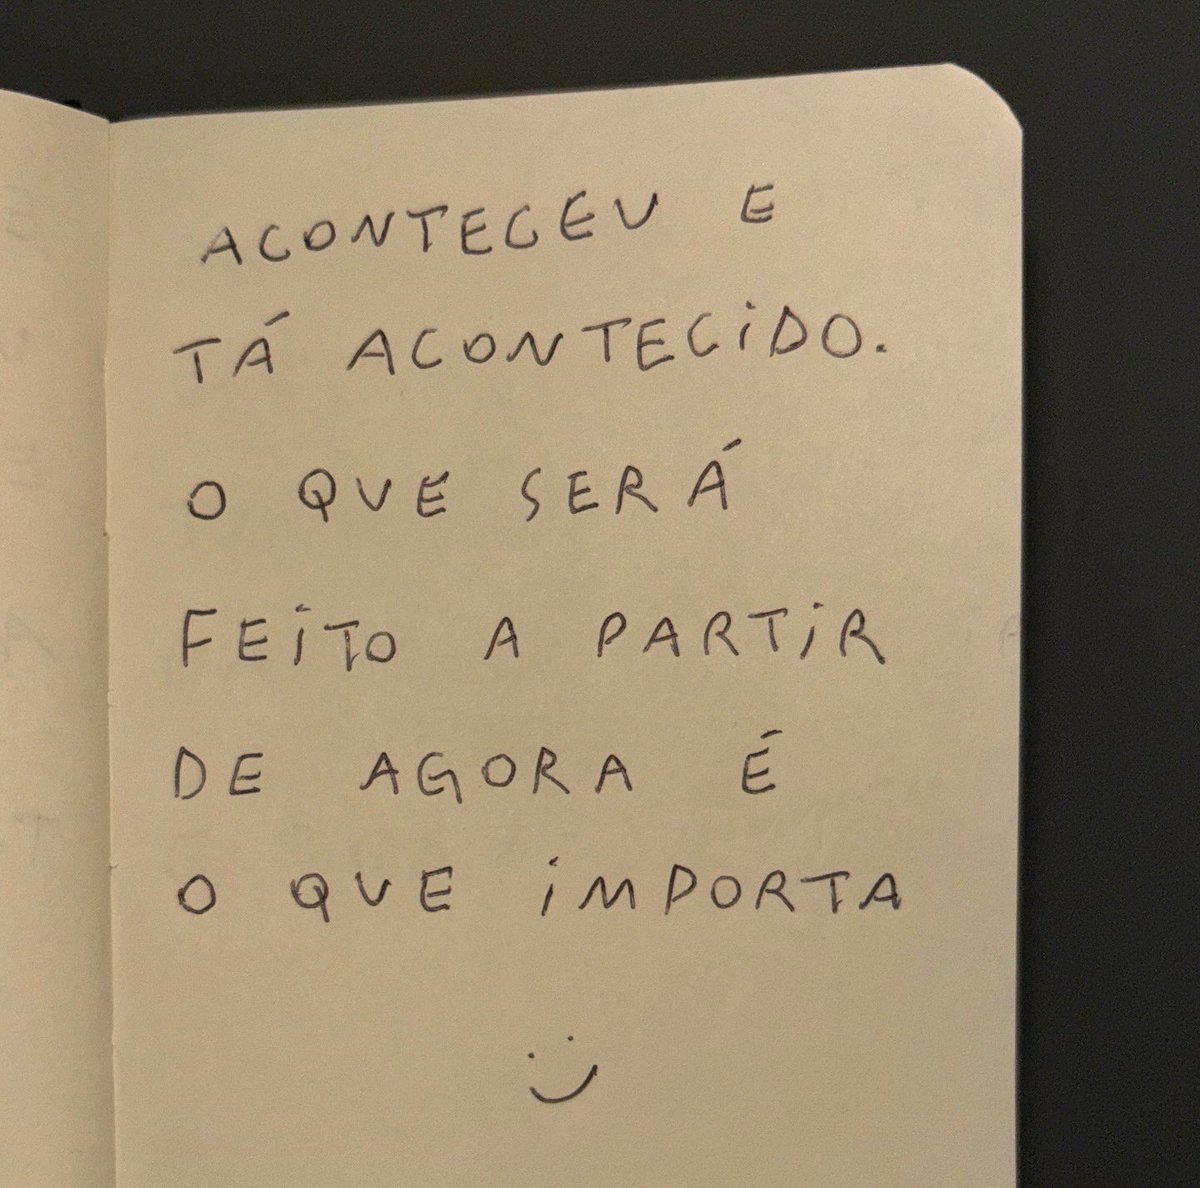 ACONTECEU E
TÁ ACONTECIDO.
O QUE SERÁ
FEITO A PARTIR
DE AGORA É
O QUE IMPORTA